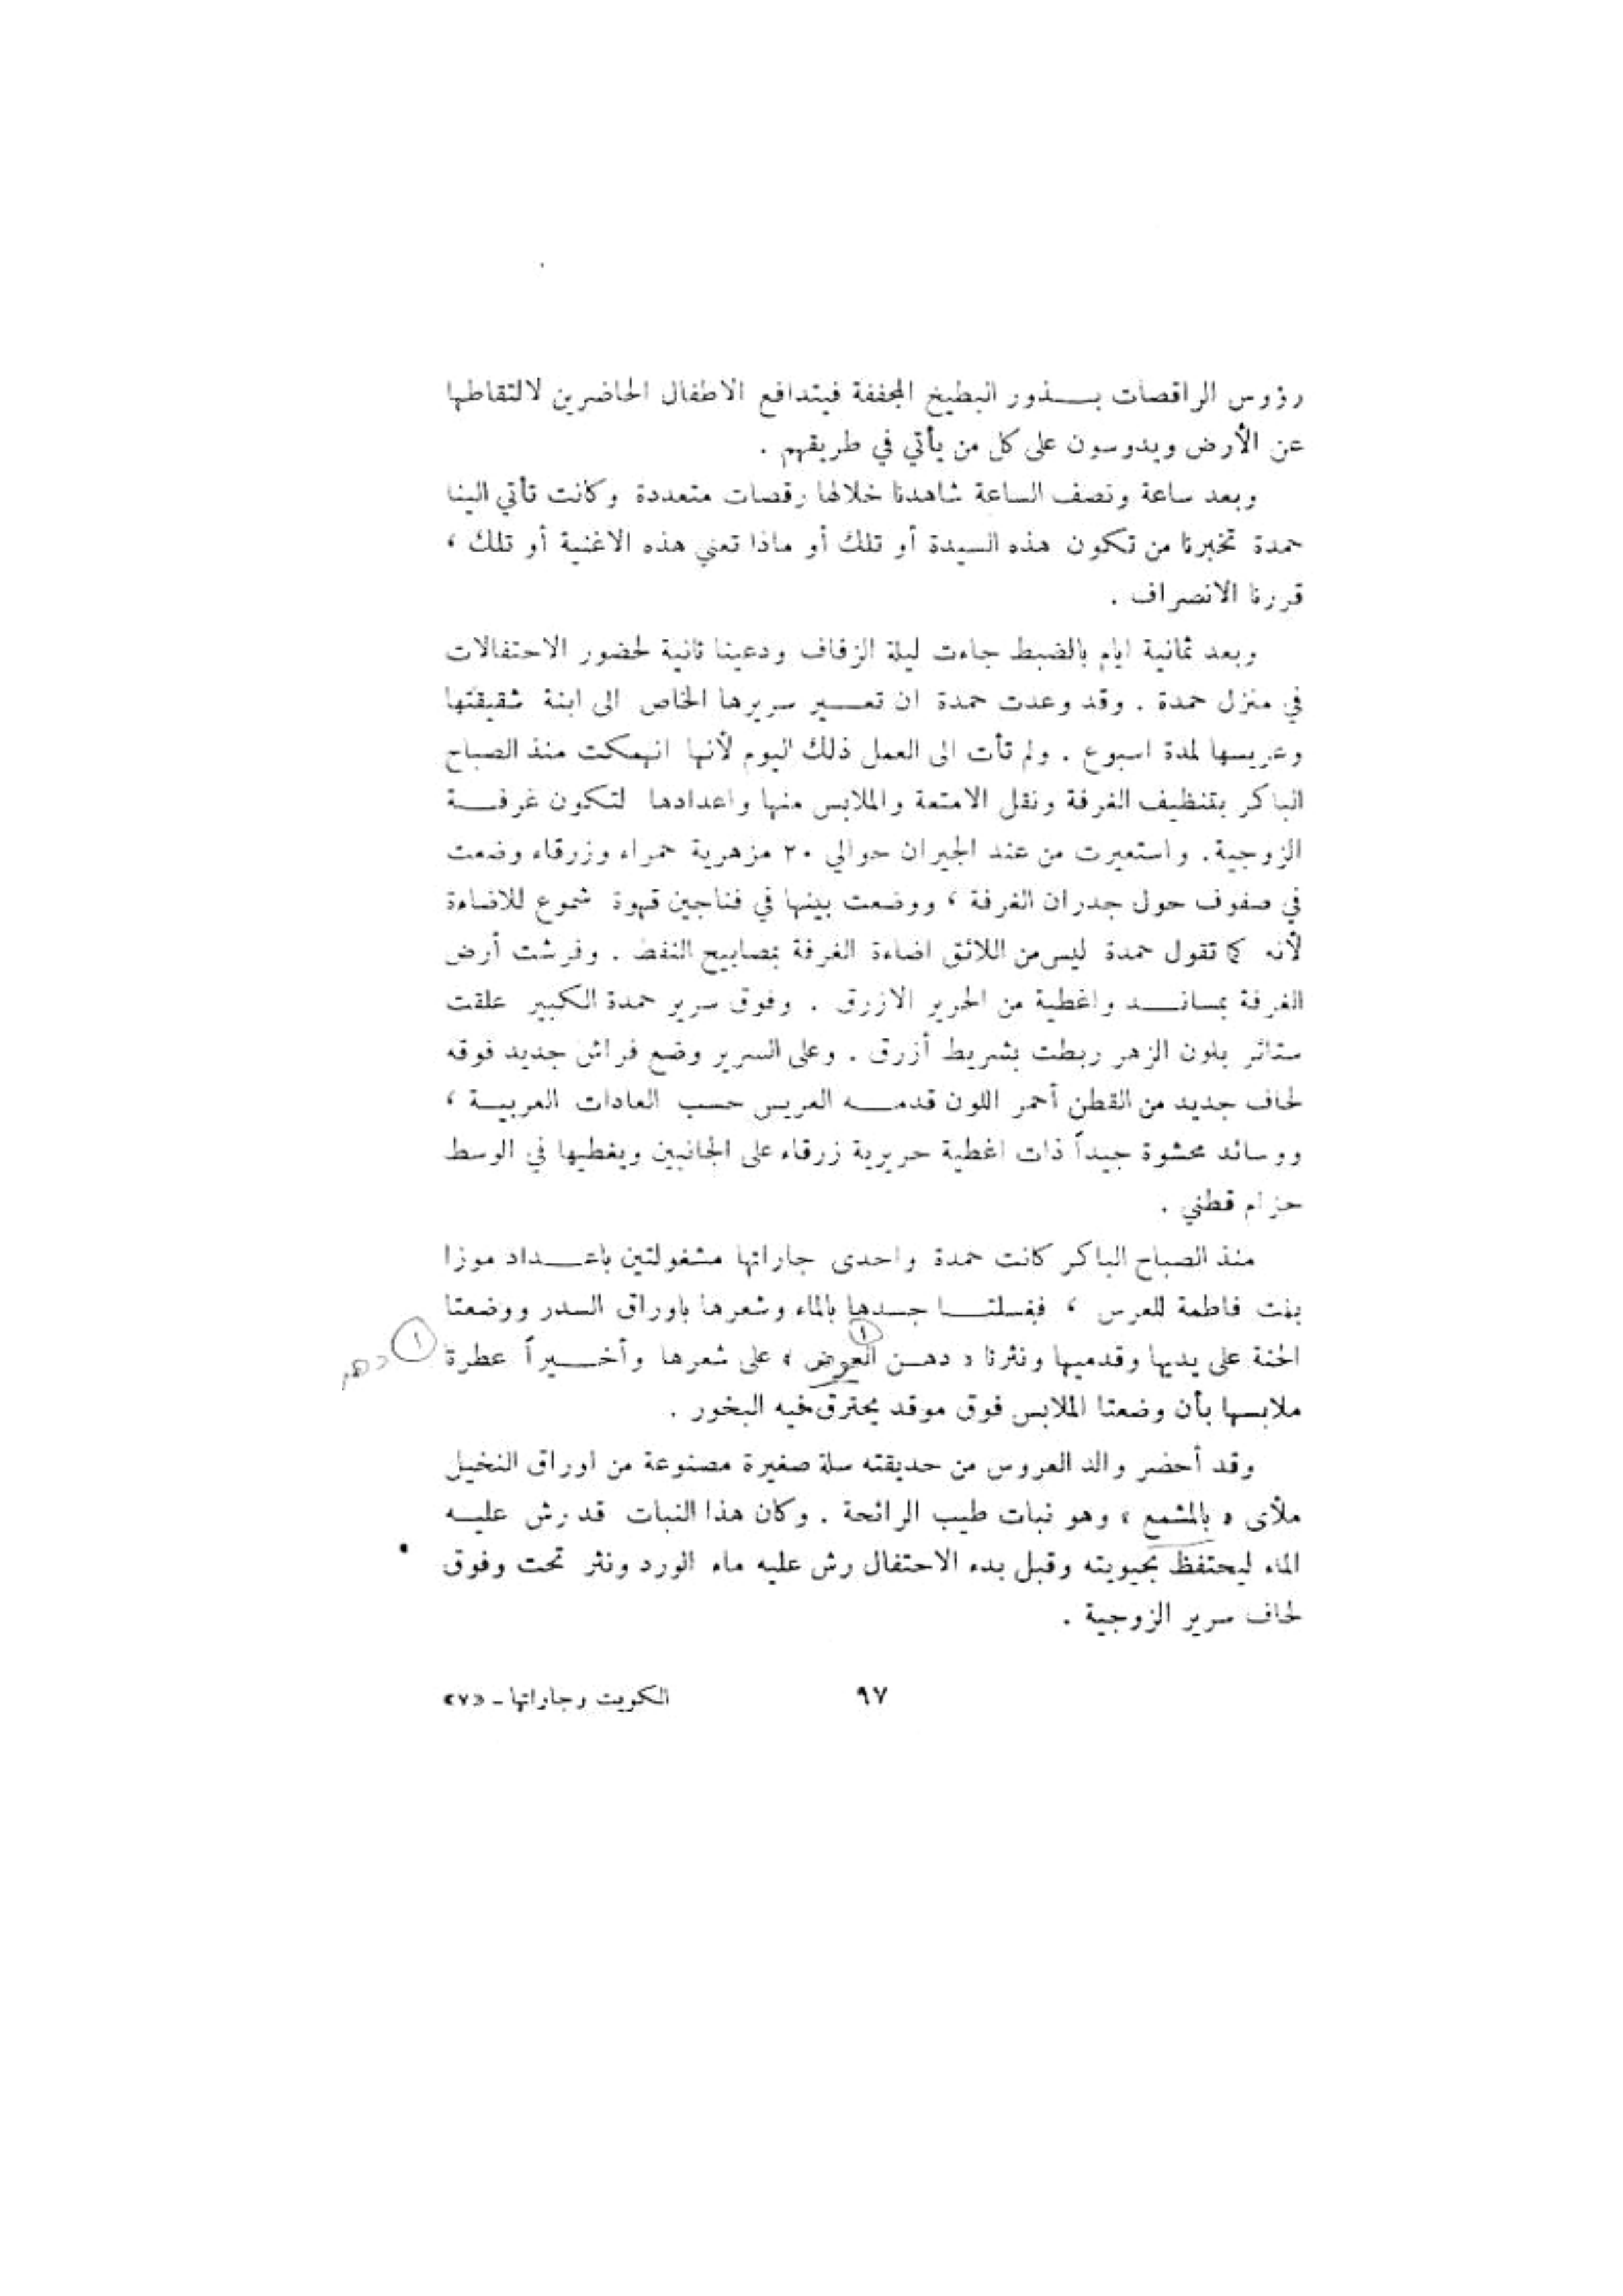 رؤوس الراقصات بـــذور البطيخ المجففة فيتدافع الاطفال الحاضرين لالتقاطها
عن الأرض ويدوسون على كل من يأتي في طريقهم .
وبعد ساعة ونصف الساعة شاهدنا خلالها رقصات متعددة وكانت تأتي الينا
حمدة تخبرنا من تكون هذه السيدة أو تلك أو ماذا تعني هذه الاغنية أو تلك ،
قررنا الانصراف .
وبعد ثمانية ايام بالضبط جاءت ليلة الزفاف ودعينا ثانية لحضور الاحتفالات
في منزل حمدة . وقد وعدت حمدة ان تعـــير سريرها الخاص الى ابنة شقيقتها
وعريسها لمدة اسبوع . ولم تأت الى العمل ذلك اليوم لأنها انهمكت منذ الصباح
الباكر بتنظيف الغرفة ونقل الامتعة والملابس منها واعدادها لتكون غرفـــة
الزوجية . واستعيرت من عند الجيران حوالي ٢٠ مزهرية حمراء وزرقاء وضعت
في صفوف حول جدران الغرفة ، ووضعت بينها في فناجين قهوة شموع للاضاءة
لأنه كما تقول حمدة ليس من اللائق اضاءة الغرفة بمصابيح النفط . وفرشت أرض
الغرفة بمسانـــد واغطية من الحرير الازرق . وفوق سرير حمدة الكبير علقت
ستائر بلون الزهر ربطت بشريط أزرق . وعلى السرير وضع فراش جديد فوقه
لحاف جديد من القطن أحمر اللون قدمـــه العريس حسب العادات العربيـــة ،
ووسائد محشوة جيداً ذات اغطية حريرية زرقاء على الجانبين ويغطيها في الوسط
حزام قطني .
منذ الصباح الباكر كانت حمدة واحدى جاراتها مشغولتين باعـــداد موزا
بنت فاطمة للعرس ، فغسلتـــا جسدها بالماء وشعرها باوراق السدر ووضعتا
الحنة على يديها وقدميها ونثرنا « دهـــن العرض » على شعرها وأخـــيراً عطرة
ملابسها بأن وضعتا الملابس فوق موقد يحترق فيه البخور .
وقد أحضر والد العروس من حديقته سلة صغيرة مصنوعة من اوراق النخيل
ملأى « بالمشمع » وهو نبات طيب الرائحة . وكان هذا النبات قد رش عليـــه
الماء ليحتفظ بحيويته وقبل بدء الاحتفال رش عليه ماء الورد ونثر تحت وفوق
لحاف سرير الزوجية .
٩٧
الكويت وجاراتها - «٧»